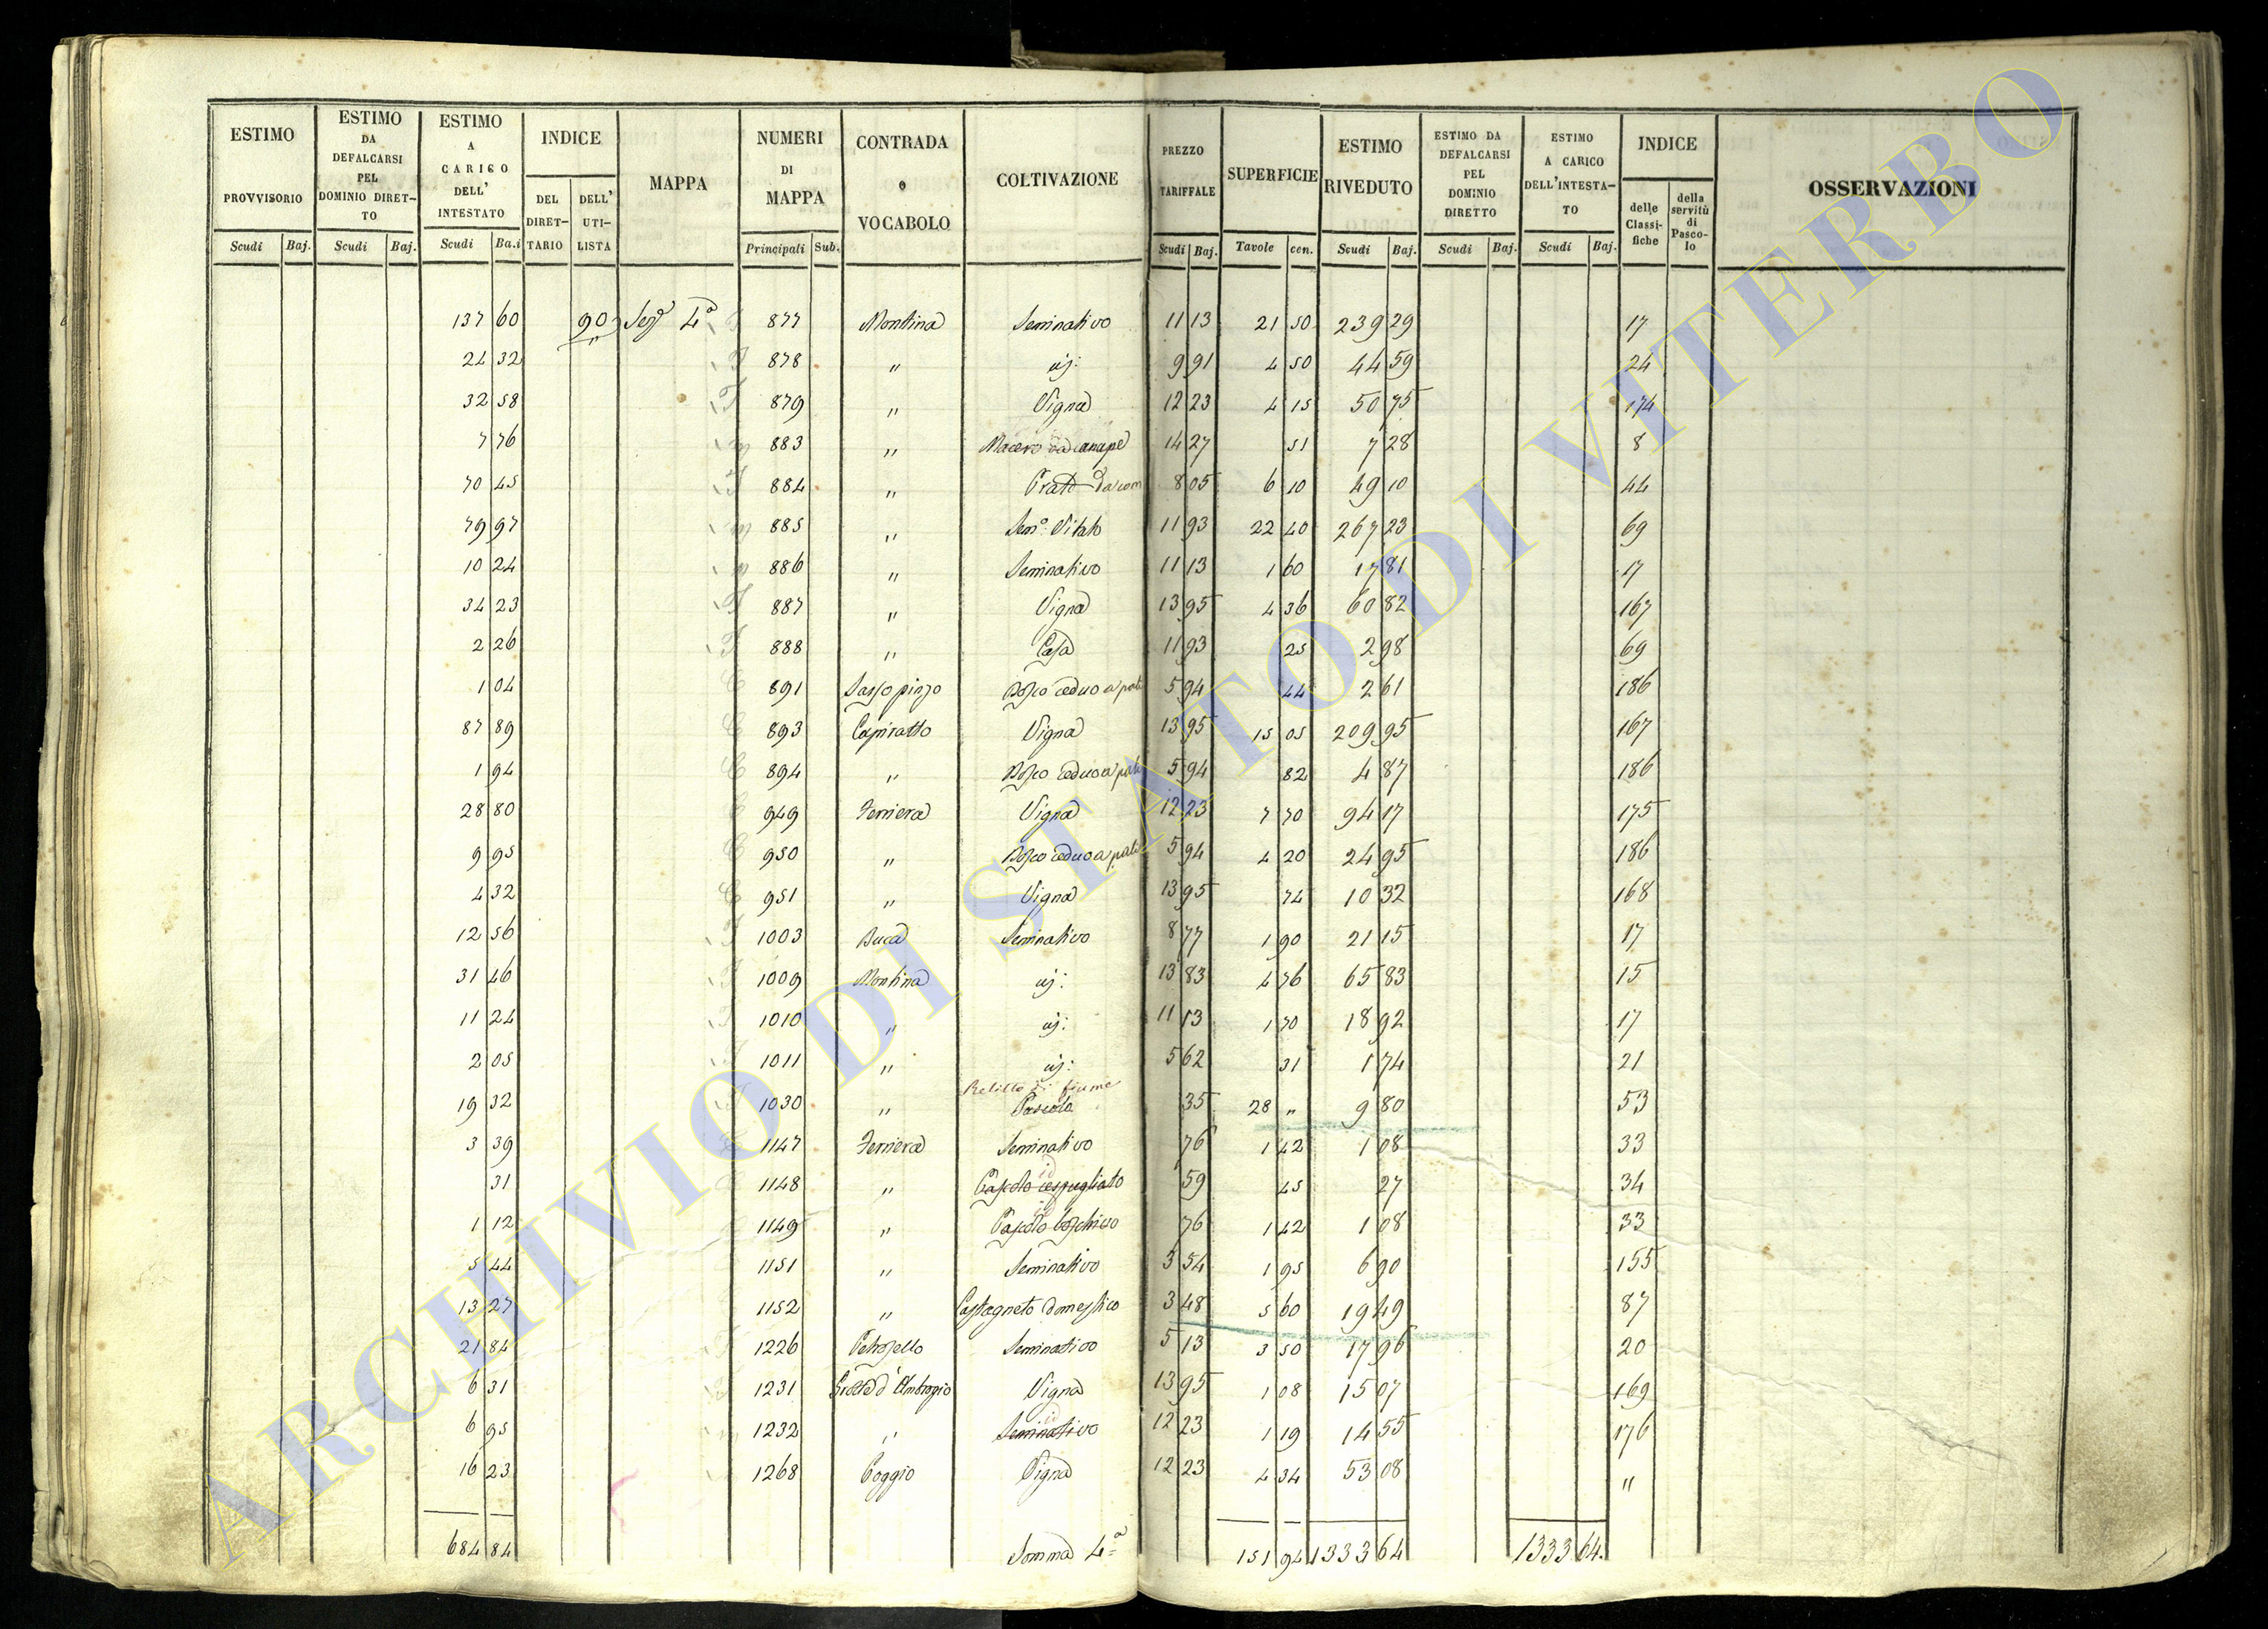 ESTIMO PROVVISORIO | ESTIMO DA DEFALCARSI PEL DOMINIO DIRET-TO | ESTIMO A CARICO DELL' INTESTATO | INDICE | MAPPA | NUMERI DI MAPPA | CONTRADA o VOCABOLO | COLTIVAZIONE | PREZZO TARIFFALE | SUPERFICIE | ESTIMO RIVEDUTO | ESTIMO DA DEFALCARSI PEL DOMINIO DIRETTO | ESTIMO A CARICO DELL'INTESTA-TO | INDICE | OSSERVAZIONI
DEL DIRET-TARIO | DELL' UTI-LISTA | delle Classi-fiche | della servitù di Pasco-lo
Scudi | Baj. | Scudi | Baj. | Scudi | Ba.i | Principali | Sub. | Scudi | Baj. | Tavole | cen. | Scudi | Baj. | Scudi | Baj. | Scudi | Baj.
137 60 | 90 | Seze 4a | 877 | Montina | Seminativo | 11 13 | 21 50 | 239 29 | 17
24 32 | 878 | " | id: | 9 91 | 4 50 | 44 59 | 24
32 58 | 879 | " | Vigna | 12 23 | 4 15 | 50 75 | 174
7 76 | 883 | " | Macero da canape | 14 27 | 51 | 7 28 | 8
70 45 | 884 | " | Prato | 8 05 | 6 10 | 49 10 | 44
79 97 | 885 | " | Semo Vitato | 11 93 | 22 40 | 267 23 | 69
10 24 | 886 | " | Seminativo | 11 13 | 1 60 | 17 81 | 17
34 23 | 887 | " | Vigna | 13 95 | 4 36 | 60 82 | 167
2 26 | 888 | " | Casa | 11 93 | 25 | 2 98 | 69
1 04 | 891 | Sasso pinzo | Bosco ceduo a pali | 5 94 | 44 | 2 61 | 186
87 89 | 893 | Capiratto | Vigna | 13 95 | 15 05 | 209 95 | 167
1 94 | 894 | " | Bosco ceduo a pali | 5 94 | 82 | 4 87 | 186
28 80 | 949 | Ferriera | Vigna | 12 23 | 7 70 | 94 17 | 175
9 95 | 950 | " | Bosco ceduo a pali | 5 94 | 4 20 | 24 95 | 186
4 32 | 951 | " | Vigna | 13 95 | 74 | 10 32 | 168
12 56 | 1003 | Buca | Seminativo | 8 77 | 1 90 | 21 15 | 17
31 46 | 1009 | Montina | id: | 13 83 | 4 76 | 65 83 | 15
11 24 | 1010 | " | id: | 11 13 | 1 70 | 18 92 | 17
2 05 | 1011 | " | id: | 5 62 | 31 | 1 74 | 21
Relitto di fiume
19 32 | 1030 | " | Pascolo | 35 | 28 " | 9 80 | 53
3 39 | 1147 | Ferriera | Seminativo | 76 | 1 42 | 1 08 | 33
31 | 1148 | " | Pascolo cespugliato | 59 | 45 | 27 | 34
1 12 | 1149 | " | Pascolo boschivo | 76 | 1 42 | 1 08 | 33
5 44 | 1151 | " | Seminativo | 3 54 | 1 95 | 6 90 | 155
13 27 | 1152 | " | Castagneto domestico | 3 48 | 5 60 | 19 49 | 87
21 84 | 1226 | Petrosello | Seminativo | 5 13 | 3 50 | 17 96 | 20
6 31 | 1231 | d'Ambrogio | Vigna | 13 95 | 1 08 | 15 07 | 169
6 95 | 1232 | " | Seminativo | 12 23 | 1 19 | 14 55 | 176
16 23 | 1268 | Poggio | Vigna | 12 23 | 4 34 | 53 08 | "
684 84 | Somma 4a | 151 94 | 1333 64 | 1333 64
ARCHIVIO DI STATO DI VITERBO